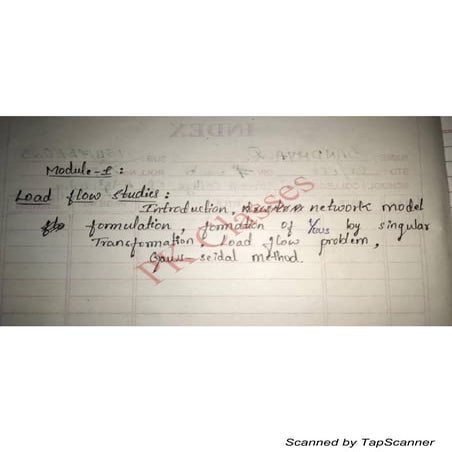 INDEX
Module-1:
Load flow studies:
Introduction, network model
formulation, formation of Ybus by singular
Trancformation, Load flow problem,
Gauss seidal method.
PK Classes
Scanned by TapScanner